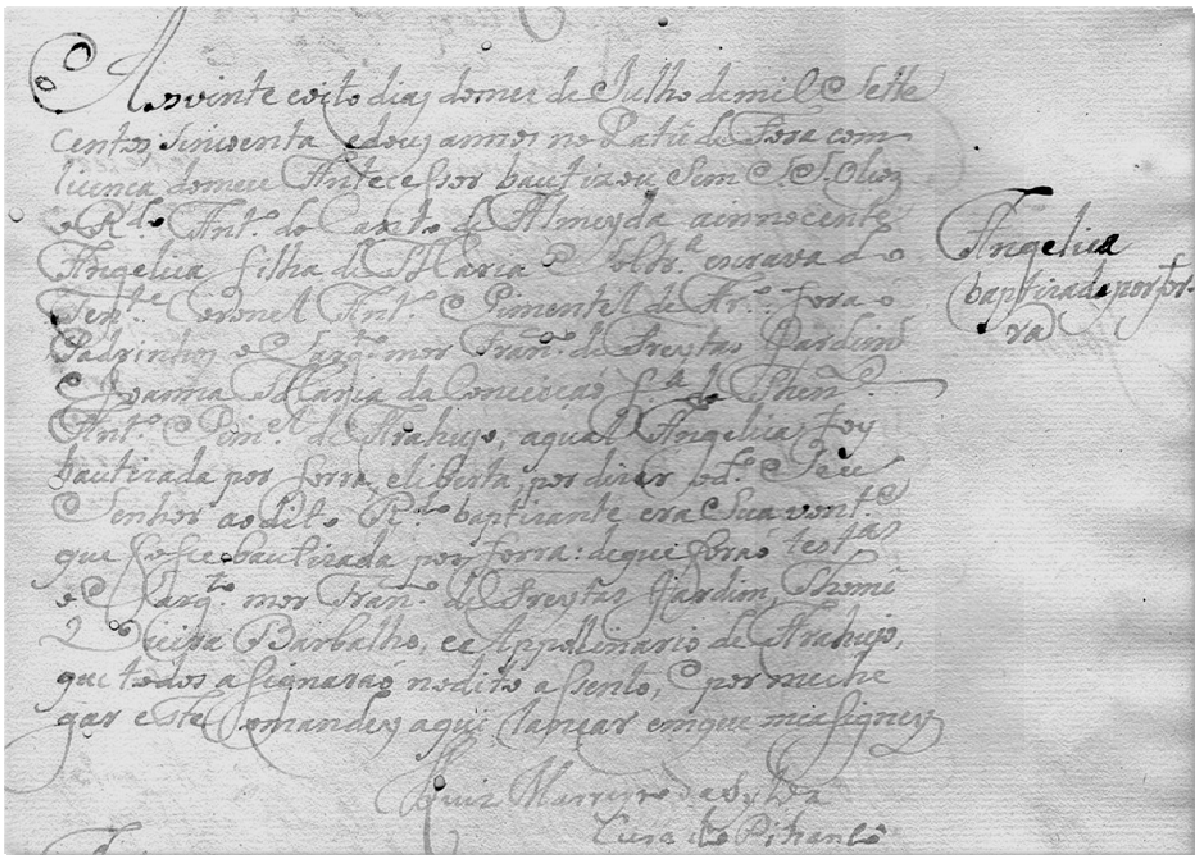 Aos vinte eoito dias domes de Julho demil Sette
centos Sincoenta edous annos no Patû de Fora com
licença domeu Antecessor bautizou Sem S.S. Oleos
o R.do Ant.o do Canto de Almeyda ainnocente
Angelica filha de Maria Solt.a escrava do
Ten.te Coronel Ant.o Pimentel de Ar.o fora o
Padrinhos o Sarg.to mor Fran.co de Freytas Jardim
E Joanna Maria da Conceicaõ f.a do Then.e
Ant.o Pim.el de Arahujo, aqual Angelica foy
bautizada por forra, eliberta, por dizer od.o Seu
Senhor aodito R.do baptizante era Sua vont.e
que fosse bautizada por forra: deque foraõ test.as
o Sarg.to mor Fran.co de Freytas Jardim, Thomé
Vieira Barbalho, ee Appolinario de Arahujo,
que todos asignaraõ nodito assento, E por meche
gar este omandey aqui lançar emque measigney
Luiz Marreyro da Sylva
Cura do Pihancô
Angelica
baptizada porfor-
ra